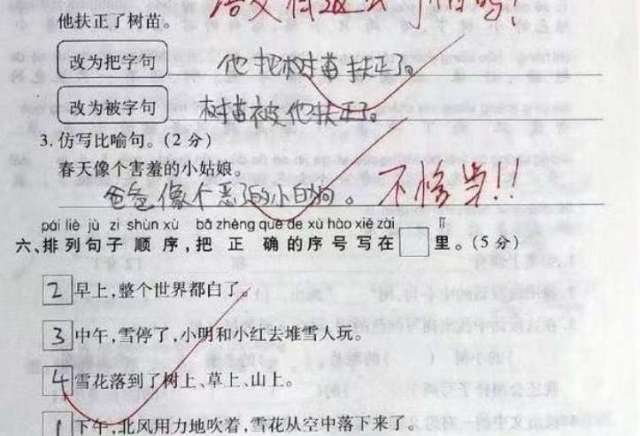 他扶正了树苗。
改为把字句 他把树苗扶正了。
改为被字句 树苗被他扶正了。
3.仿写比喻句。(2分)
春天像个害羞的小姑娘。
爸爸像个恶了的小白狗。 不恰当!!
pái liè jù zi shùn xù bǎ zhèng què de xù hào xiě zài lǐ
六、排列句子顺序,把正确的序号写在里。(5分)
2 早上,整个世界都白了。
3 中午,雪停了,小明和小红去堆雪人玩。
4 雪花落到了树上、草上、山上。
1 下午,北风用力地吹着,雪花从空中落下来了。